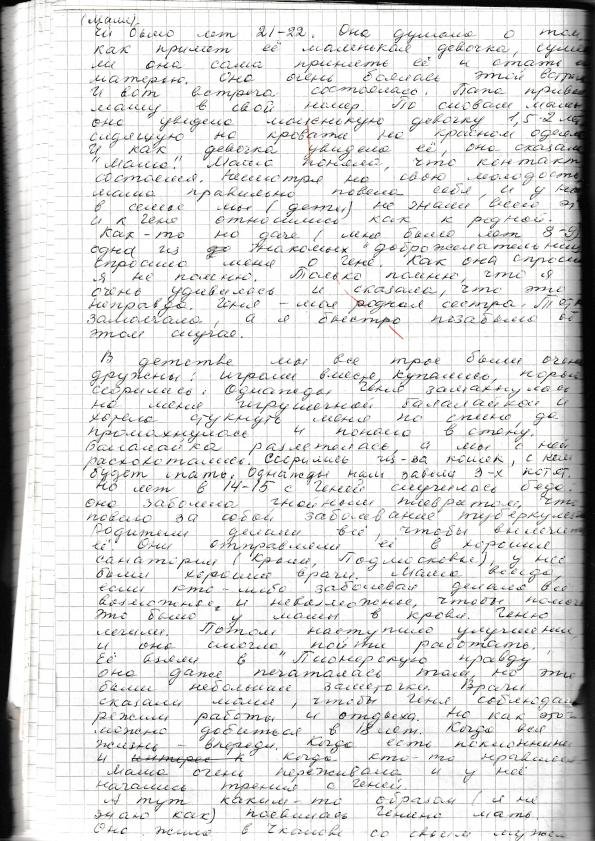 (Маме)
ей было лет 21-22. Она думала о том,
как примет её маленькая девочка, суме
ли она сама принять её и стать е
матерью. Она очень боялась этой встре
И вот встреча состоялась. Папа привё
маму в свой номер. По словам мамы
она увидела малюсенькую девочку 1,5-2 лет
сидящую на кровати на красном одеял
И как девочка увидела её, она сказала
"Мама". Мама поняла, что контакт
состоялся. Несмотря на свою молодость,
мама правильно повела себя, и у нас
в семье мы (дети) не знали всего эт
и к Гене относились как к родной.
Как-то на даче (мне было лет 8-9)
одна из знакомых "доброжелательниц"
спросила меня о Гене. Как она спроси
я не помню. Только помню, что я
очень удивилась и сказала, что это
неправда. Геня - моя родная сестра. Та
замолчала, а я быстро позабыла об
этом случае.
В детстве мы все трое были очень
дружны: играли вместе, купались, порой
ссорились. Однажды Геня замахнулась
на меня игрушечной балалайкой и
хотела стукнуть меня по спине да
промахнулась и попала в стену.
Балалайка разлетелась и мы с ней
расхохотались. Ссорились из-за кошек, с кем
будет спать. Однажды нам завели 3-х котят.
Но лет в 14-15 с Геней случилась беда:
она заболела гнойным плевритом, что
повело за собой заболевание туберкулёзом
Родители делали всё, чтобы вылечить
её. Они отправляли её в хорошие
санатории (Крым, Подмосковье), у неё
были хорошие врачи. Мама всегда,
если кто-либо заболевал делала все
возможное и невозможное, чтобы помочь
Это было у мамы в крови. Геню
лечили. Потом наступило улучшение,
и она смогла пойти работать.
Её взяли в "Пионерскую правду",
она даже печаталась там, но это
были небольшие заметочки. Врачи
сказали маме, чтобы Геня соблюдала
режим работы и отдыха. Но как этого
можно добиться в 18 лет. Когда вся
жизнь - впереди. Когда есть поклонники
и интерес к когда кто-то нравился
Мама очень переживала и у неё
начались трения с Геней.
А тут каким-то образом (я не
знаю как) появилась Генина мать.
Она жила в Чкалове со своим мужем